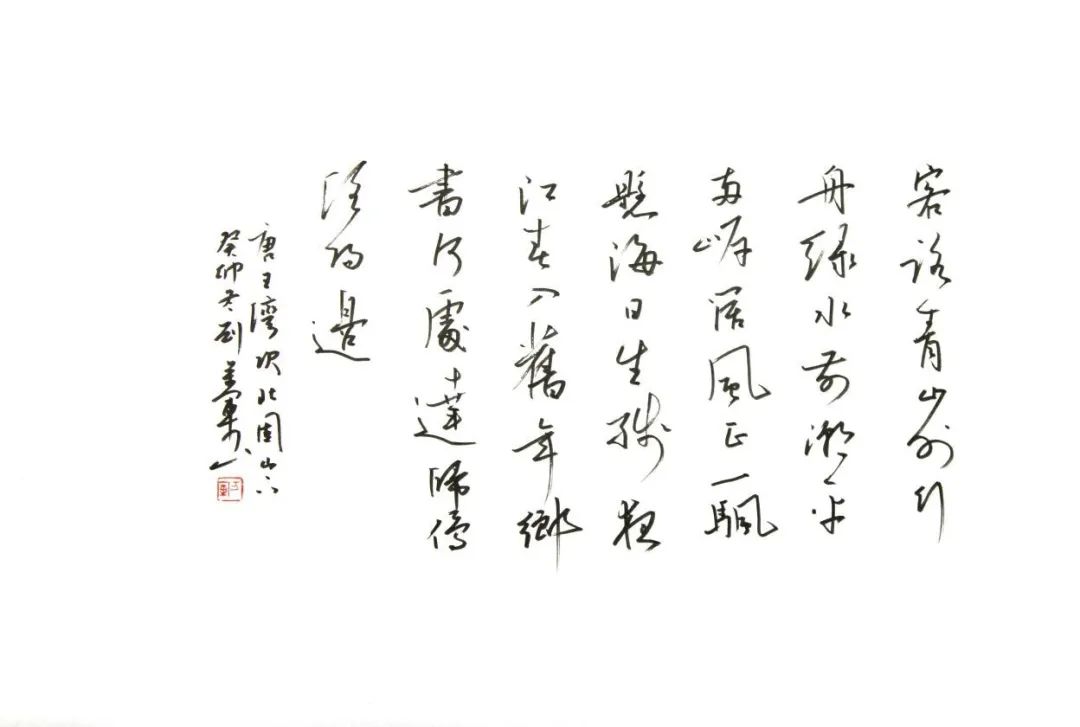 客路青山外行
舟緑水前潮平
兩岸闊風正一颿
懸海日生殘夜
江春入舊年鄉
書何處達歸雁
洛陽邊
唐王灣次北固山下
癸卯冬